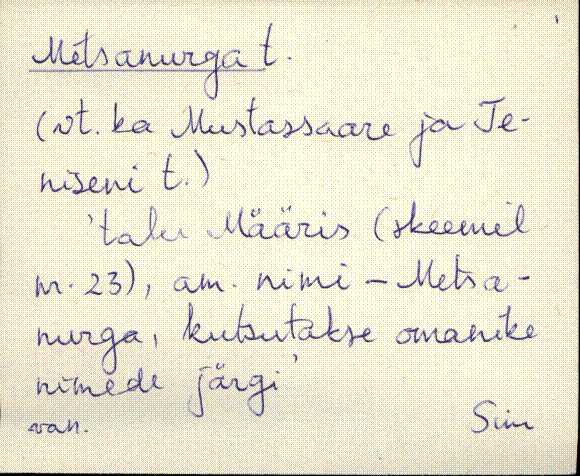 Metsanurga t.
(vt. ka Mustassaare ja Te-
niseni t.)
'talu Määris (skeemil
nr. 23), am. nimi – Metsa-
nurga, kutsutakse omanike
nimede järgi'
van.